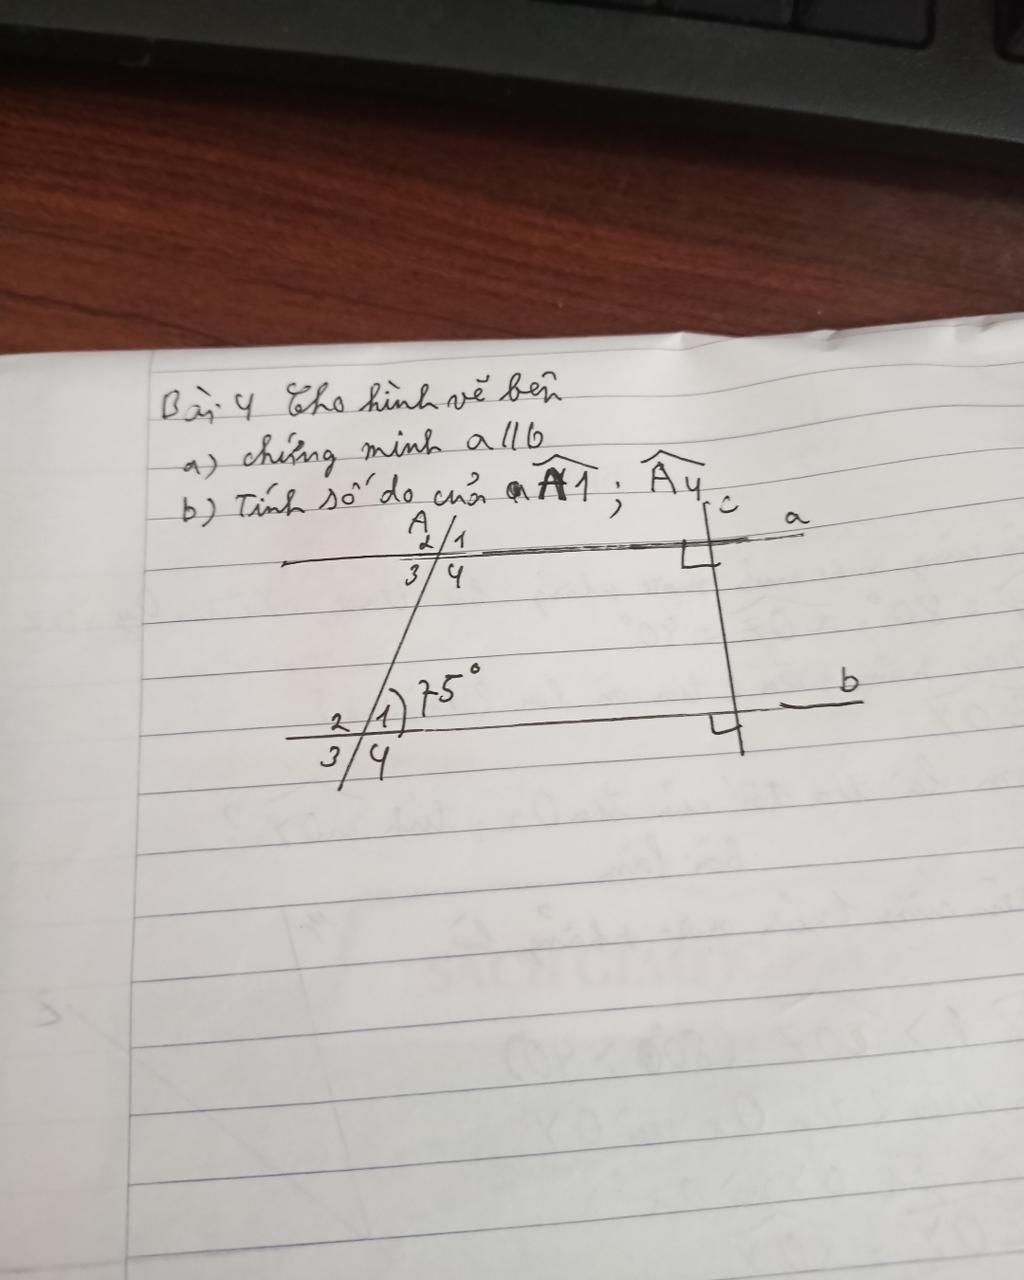 Bài 4 Cho hình vẽ bên
a) chứng minh a // b
b) Tính số đo của A1 ; A4
A
c
a
2 1
3 4
75°
b
2 1
3 4